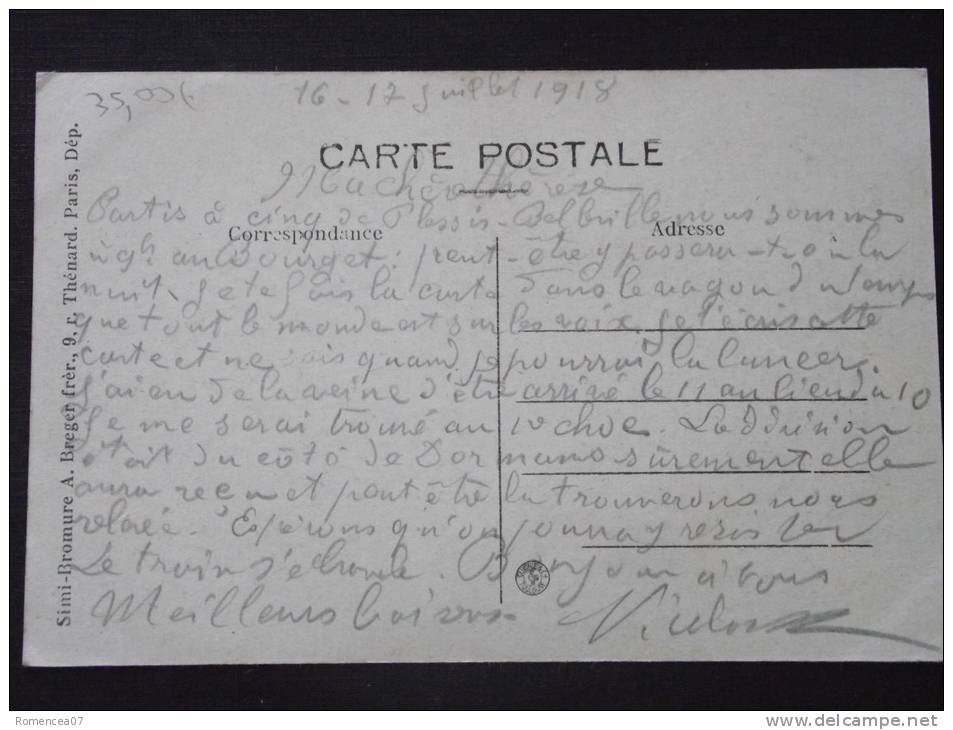 35,00€
16-17 Juillet 1918
CARTE POSTALE
Ma chère Thérèse
Partis à cinq de Plessis-Belleville nous sommes
Correspondance
Adresse
à 9h au Bourget: peut-être y passera-t-on la
nuit. Je te fais la carte dans le wagon
que tout le monde est sur les voix. Je t'écris cette
carte et ne sais quand je pourrai la lancer.
J'ai eu de la veine d'être arrivé le 11 au lieu du 10
Je me serai trouvé au 1er choc. La division
était du côté de Dormans sûrement elle
aura reçu et peut être la trouverons nous
relevée. Espérons qu'on pourra y résister
Le train s'ébranle. Bonjour à tous
Meilleurs baisers.
Simi-Bromure A. Breger frèr., 9, r. Thénard. Paris, Dép.
Romencea07
www.delcampe.net